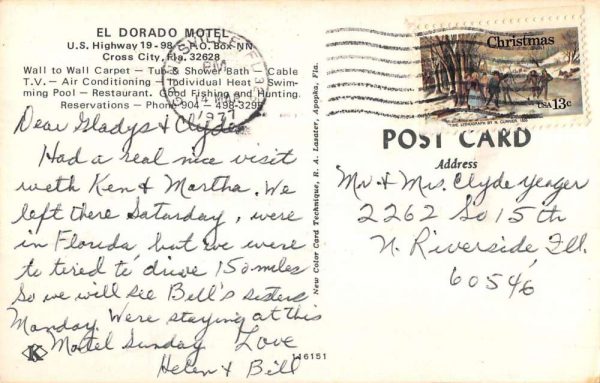 EL DORADO MOTEL
U.S. Highway 19-98 - P.O. Box NN
Cross City, Fla. 32628
Wall to Wall Carpet — Tub & Shower Bath — Cable
T.V. — Air Conditioning — Individual Heat — Swim-
ming Pool — Restaurant. Good Fishing and Hunting.
Reservations — Phone 904 — 498-3295
Dear Gladys & Clyde
Had a real nice visit
with Ken & Martha. We
left there Saturday, were
in Florida but we were
to tired to drive 150 miles
So we will see Bill's sisters
Monday. Were staying at this
Motel Sunday Love
Helen & Bill
K
116151
New Color Card Technique, R. A. Lasater, Apopka, Fla.
PM
14 MAR
1977
Christmas
USA 13c
POST CARD
Address
Mr & Mrs. Clyde Yeager
2262 So 15th
N. Riverside Ill.
60546